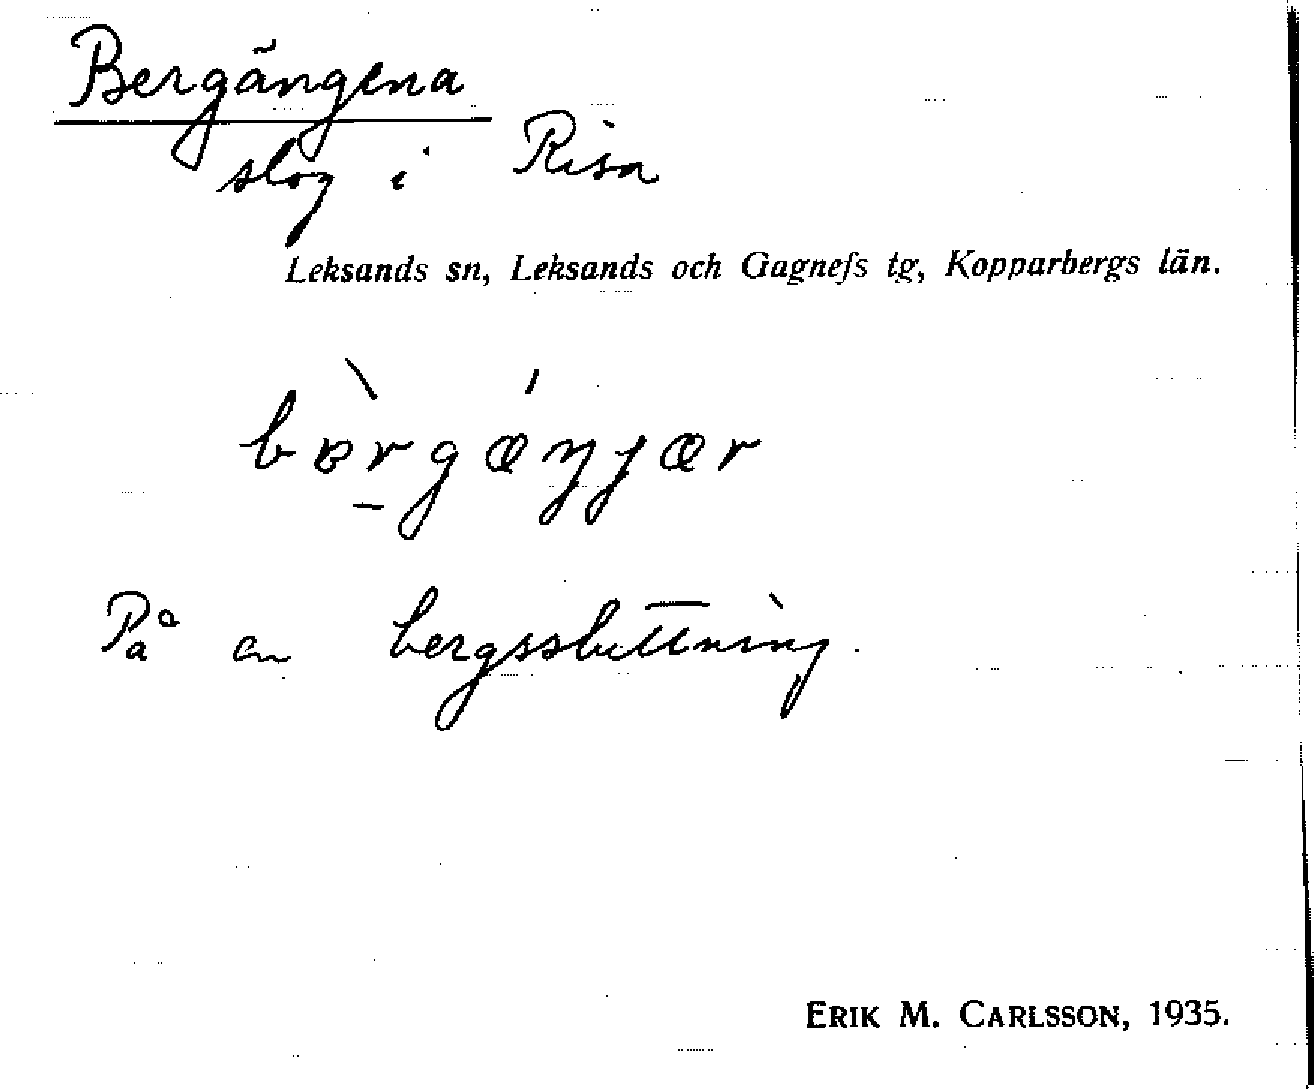 Bergängena
slog i Risa
Leksands sn, Leksands och Gagnefs tg, Kopparbergs län.
bèrgǽŋjær
På en bergssluttning.
ERIK M. CARLSSON, 1935.